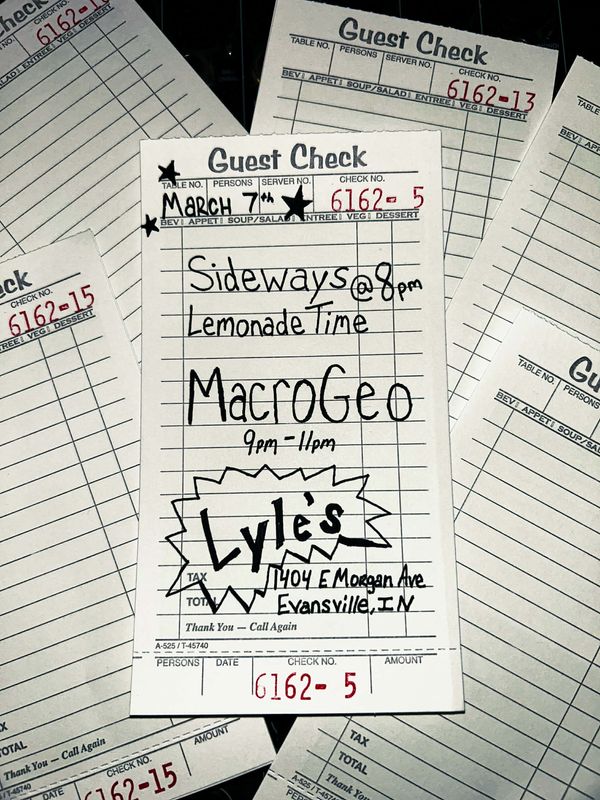 Guest Check
TABLE NO. PERSONS SERVER NO. CHECK NO.
MARCH 7th 6162- 5
BEV APPET SOUP/SALAD ENTREE VEG DESSERT
Sideways @ 8pm
Lemonade Time
MacroGeo
9pm - 11pm
Lyle's
TAX
1404 E Morgan Ave
TOTAL
Evansville, IN
Thank You — Call Again
A-525 / T-45740
PERSONS DATE CHECK NO. AMOUNT
6162- 5
Guest Check
TABLE NO. PERSONS SERVER NO. CHECK NO.
6162-13
BEV APPET SOUP/SALAD ENTREE VEG DESSERT
Check
CHECK NO.
VEG DESSERT
CHECK NO.
6162-15
VEG DESSERT
TAX
TOTAL
Thank You — Call Again
AMOUNT
DATE CHECK NO.
6162-15
TABLE NO. PERSONS
BEV APPET
TAX
TOTAL
Thank You — Call Again
A-525 / T-45740